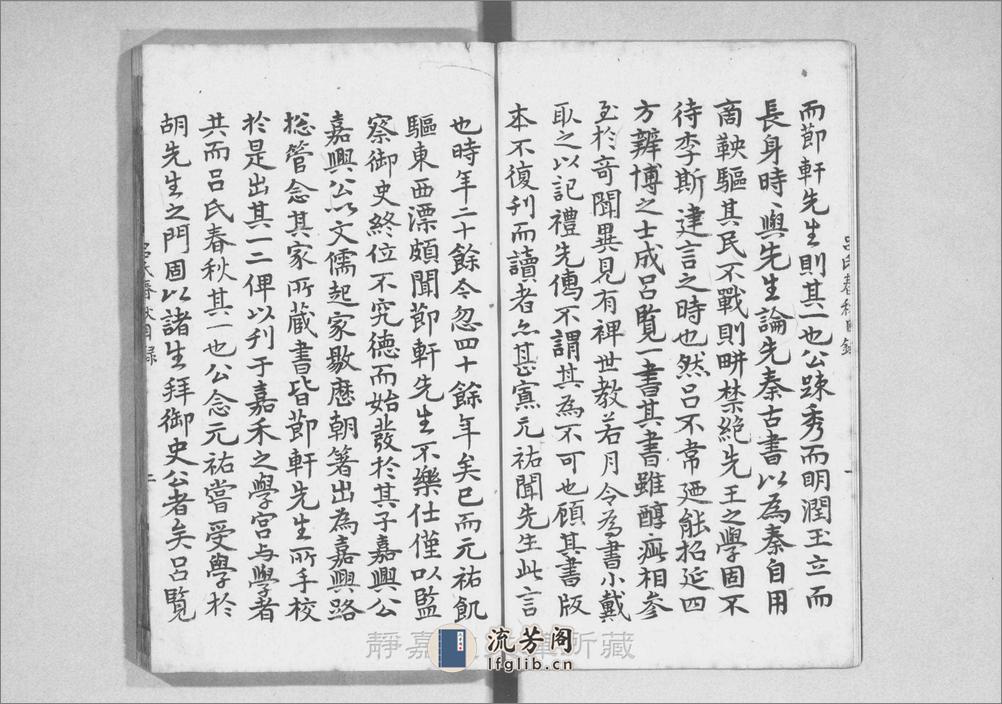 而節軒先生則其一也公踈秀而明潤玉立而
長身時〻與先生論先秦古書以為秦自用
商鞅驅其民不戰則畊禁絶先王之學固不
待李斯建言之時也然吕不韋廼能招延四
方辨博之士成吕覽一書其書雖醇疵相參
至於竒聞異見有裨世教若月令為書小戴
取之以記禮先儒不謂其為不可也顧其書版
本不復刊而讀者亦甚寡元祐聞先生此言
吕氏春秋目録
一
也時年二十餘今忽四十餘年矣已而元祐飢
驅東西漂頗聞節軒先生不樂仕僅以監
察御史終位不究德而始發於其子嘉興公
嘉興公以文儒起家敭歷朝著出為嘉興路
揔管念其家所蔵書皆節軒先生所手校
於是出其一二俾以刊于嘉禾之學宫与學者
共而吕氏春秋其一也公念元祐嘗受學於
胡先生之門固以諸生拜御史公者矣吕覽
吕氏春秋目録
二
靜嘉堂文庫所藏
流芳阁
lfglib.cn